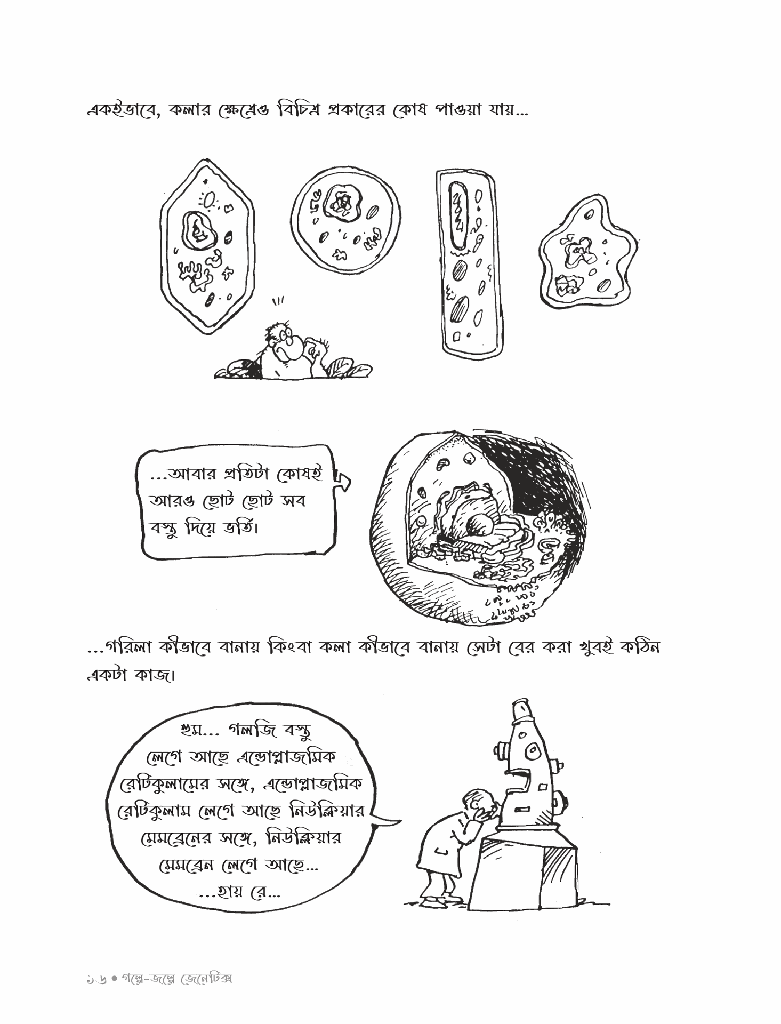 একইভাবে, কলার ক্ষেত্রেও বিচিত্র প্রকারের কোষ পাওয়া যায়...
...আবার প্রতিটা কোষই
আরও ছোট ছোট সব
বস্তু দিয়ে ভর্তি।
...গরিলা কীভাবে বানায় কিংবা কলা কীভাবে বানায় সেটা বের করা খুবই কঠিন
একটা কাজ।
হুম... গলজি বস্তু
লেগে আছে এন্ডোপ্লাজমিক
রেটিকুলামের সঙ্গে, এন্ডোপ্লাজমিক
রেটিকুলাম লেগে আছে নিউক্লিয়ার
মেমব্রেনের সঙ্গে, নিউক্লিয়ার
মেমব্রেন লেগে আছে...
...হায় রে...
১৬ • গল্পে-জল্পে জেনেটিক্স